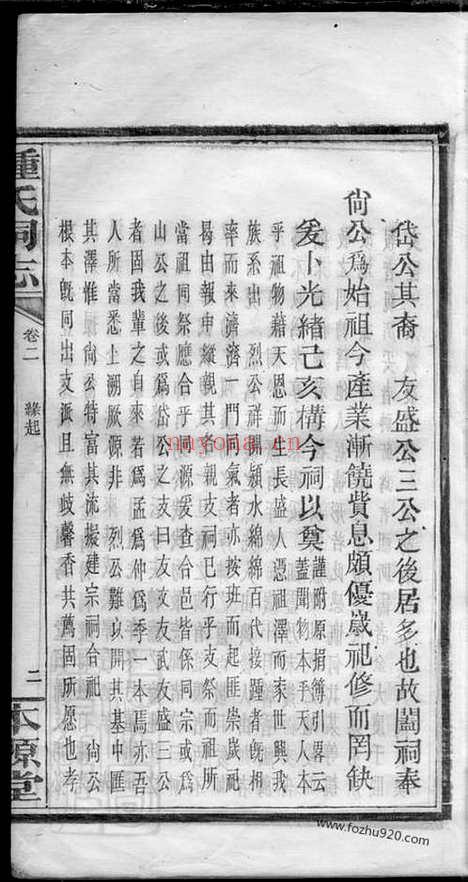 岱公其裔　友盛公三公之後居多也故闔祠奉
尙公爲始祖今產業漸饒貲息頗優歲祀修而罔缺
爰卜光緒己亥構今祠以奠謹附原捐簿引畧云
蓋聞物本乎天人本
乎祖物藉天恩而生長盛人憑祖澤而家世興我
族系出　烈公祥開潁水綿綿百代接踵者旣相
率而來濟濟一門同氣者亦按班而起匪崇歲祀
曷由報申縱觀我友祠已行乎支祭而祖祠所
當祖同祭應合乎同源爰查合邑皆係同宗或爲
山公之後或爲岱公之支曰友文友武友盛三公
者因我輩之自來若爲孟爲仲爲季一本焉亦吾
人所當悉上溯厥源非　烈公難以開其基中匯
其澤惟　尙公特富其流擬建宗祠合祖　尙公
根本旣同出支派且無歧馨香共薦固所愿也孝
鍾氏祠志
卷二　緣起
二
本源堂
nayona.cn
www.fozhu920.com